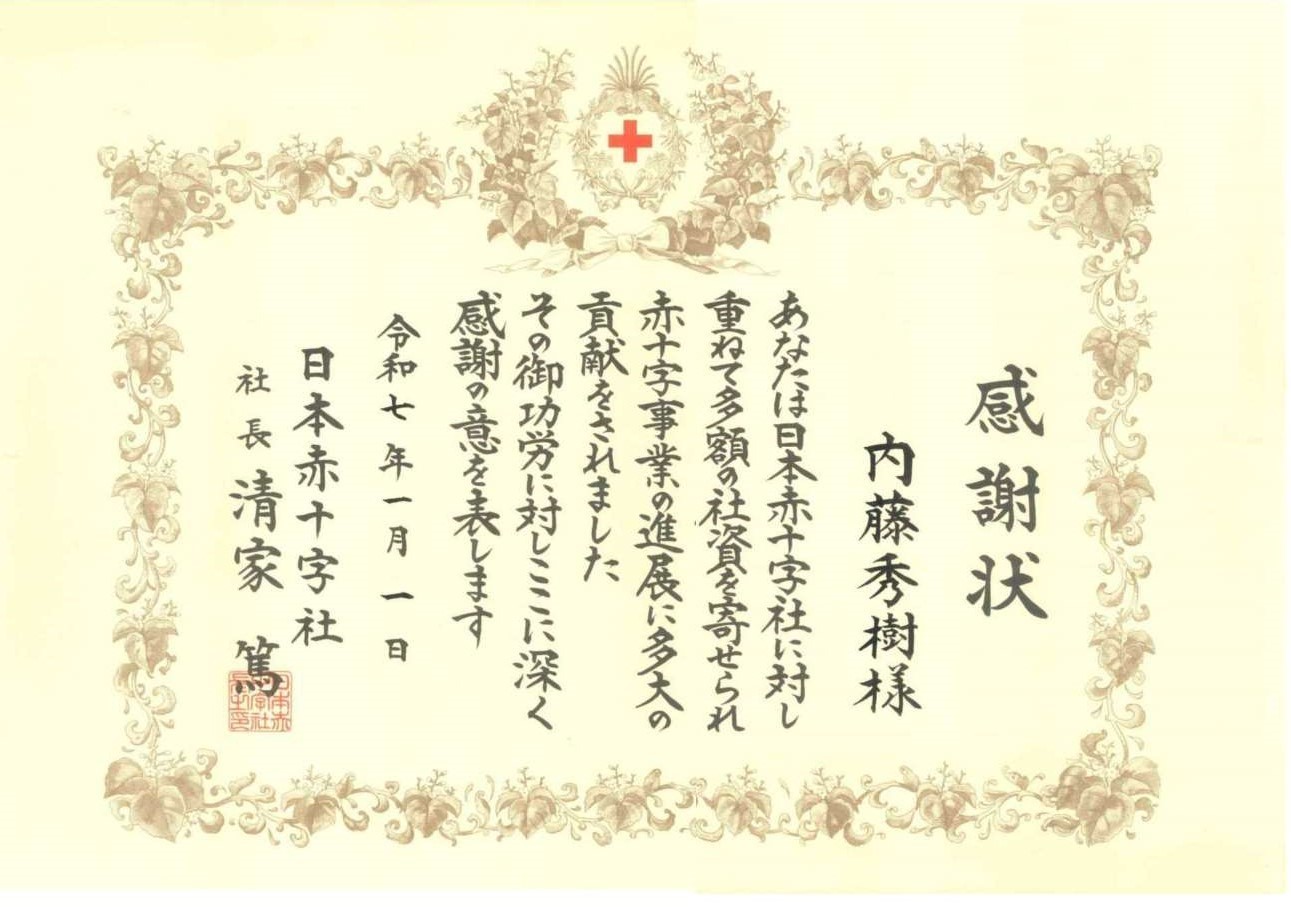 感謝状
内藤秀樹様
あなたは日本赤十字社に対し
重ねて多額の社資を寄せられ
赤十字事業の進展に多大の
貢献をされました
その御功労に対しここに深く
感謝の意を表します
令和七年一月一日
日本赤十字社
社長 清家 篤
日本赤
十字社
長之印